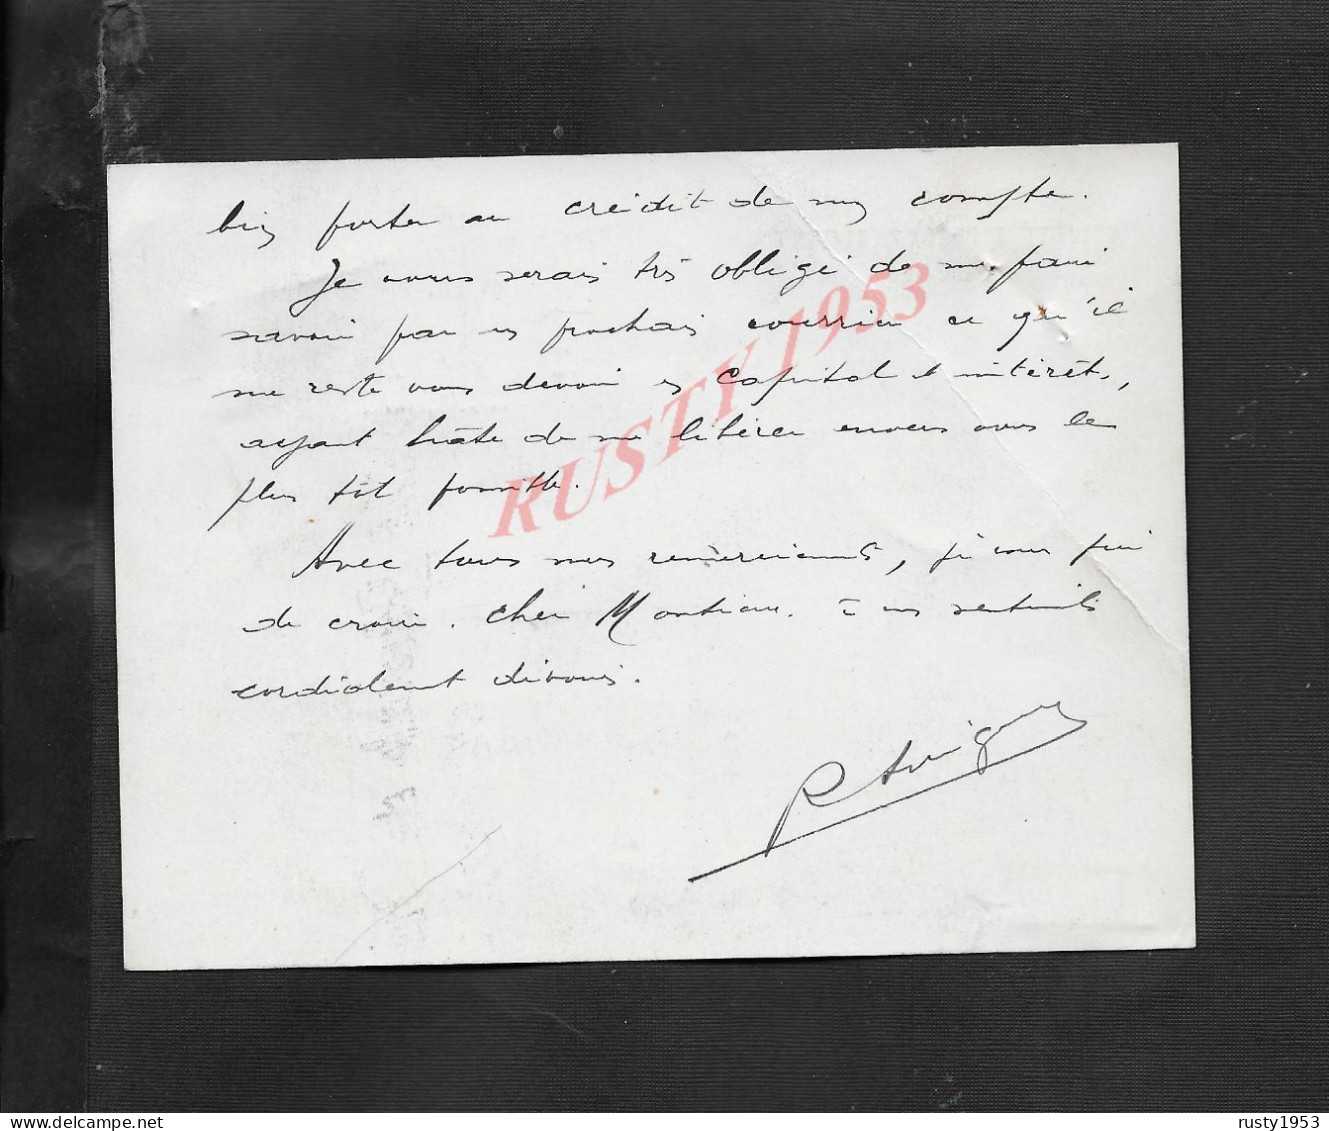 bien porter au crédit de mon compte.
Je vous serais très obligé de me faire
savoir par un prochain courrier ce qu'il
me reste vous devoir en capital et intérêts,
ayant hâte de me libérer envers vous le
plus tôt possible.
Avec tous mes remerciements, je vous prie
de croire, cher Monsieur, à mes sentiments
cordialement dévoués.
RUSTY 1953
delcampe.net
rusty1953